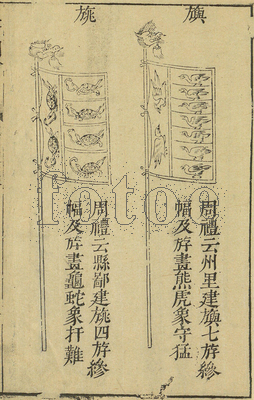 旟
周禮云州里建旟七斿縿
幅及斿畫熊虎象守猛
旐
周禮云縣鄙建旐四斿縿
幅及斿畫龜蛇象扞難